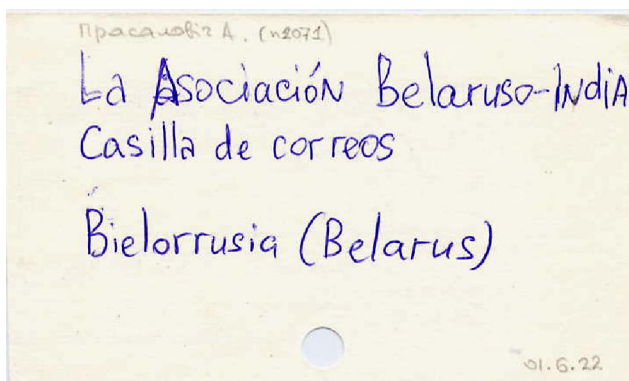 Прасаловіг А. (n2071)
La Asociación Belaruso-India
Casilla de correos
Bielorrusia (Belarus)
01.6.22